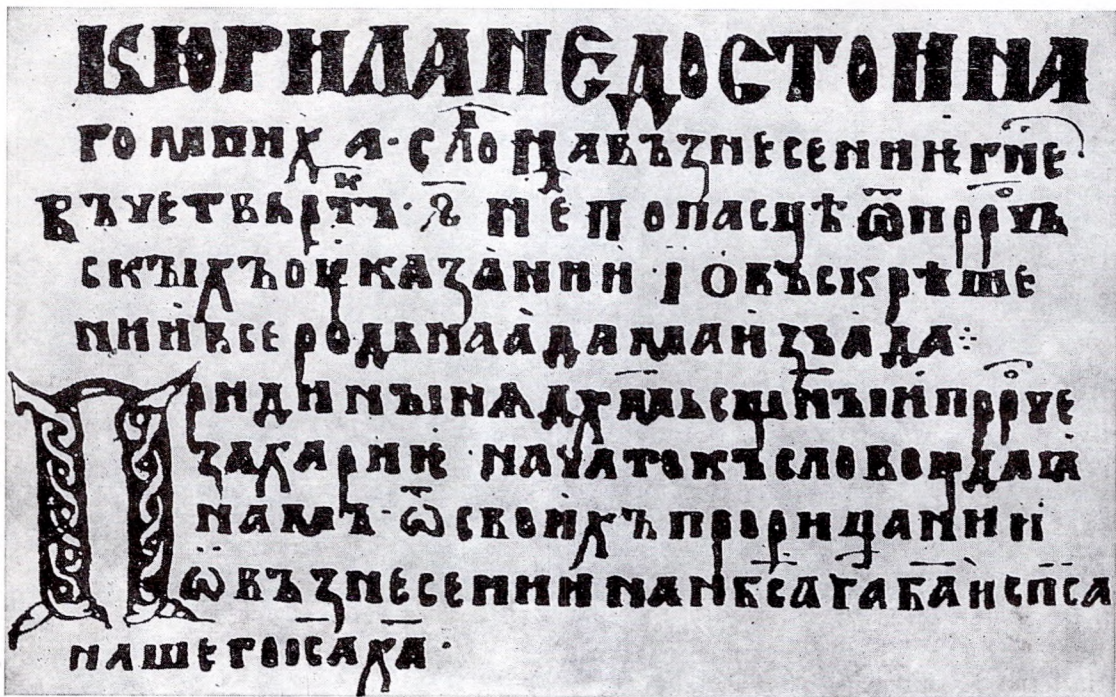 КЮРИЛА НЕДОСТОИНА
ГО МНИХА · СЛО НА ВЪЗНЕСЕНИѤ ГНЕ ·
ВЪ ЧЕТВЬРТК · Г҃ НЕ ПО ПАСЦѢ Ѿ ПРРЧЬ
СКЫХЪ ОУКАЗАНИИ · І О ВЪСКРѢШЕ
НИИ ВСЕРОДЬНА АДАМА ИЗЪ АДА ⁘
ПРИДИ НЫНѦ ДХМЬ СЩНЫИ ПРРЧЕ
ЗАХАРИѤ · НАЧАТОКЪ СЛОВОУ ДАꙖ
НАМЪ · Ѿ СВОИХЪ ПРОРИЦАНИИ
Ѡ ВЪЗНЕСЕНИИ НА НБСА ГА БА И СПСА
НАШЕГО ІСА ХА ·